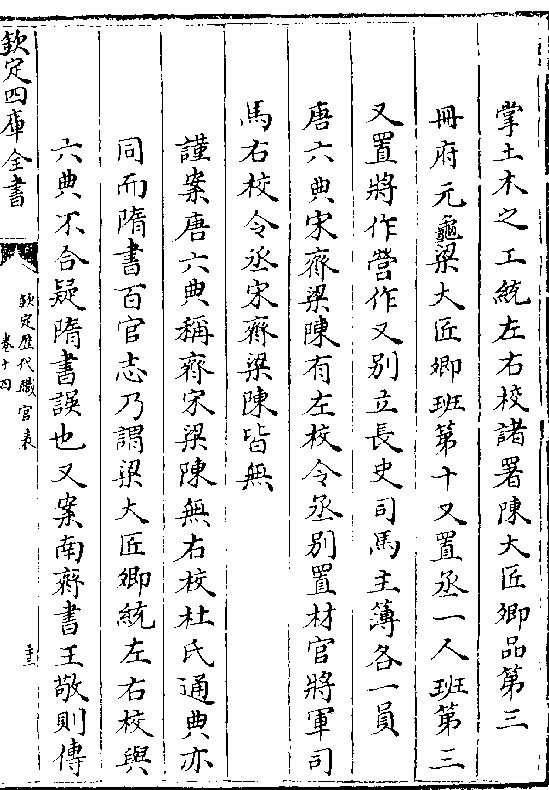 掌土木之工統左右校諸署陳大匠卿品第三
冊府元龜梁大匠卿班第十又置丞一人班第三
又置將作營作又别立長史司馬主簿各一員
唐六典宋齊梁陳有左校令丞别置材官將軍司
馬右校令丞宋齊梁陳皆無
謹案唐六典稱齊宋梁陳無右校杜氏通典亦
同而隋書百官志乃謂梁大匠卿統左右校與
六典不合疑隋書誤也又案南齊書王敬則傳
欽定四庫全書
欽定歷代職官表
卷十四